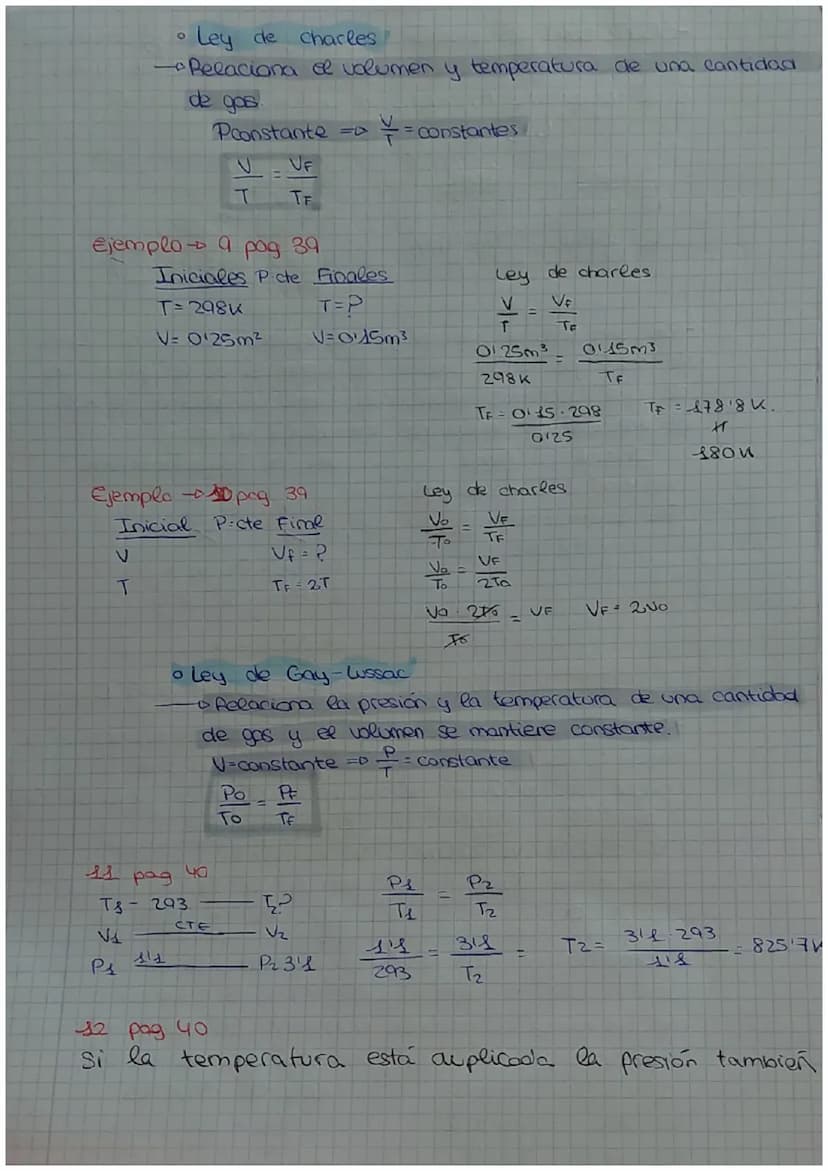 ° Ley de charles
→ Relaciona el volumen y temperatura de una cantidad
de gas.
Pconstante => V/T = constantes
V/T = VF/TF
Ejemplo → 9 pag 39
Iniciales P.cte Finales
T = 298K T = ?
V = 0'25m² V = 0'15m³
Ley de charles
V/T = VF/TF
0'25m³/298K = 0'15m³/TF
TF = 0'15 · 298/0'25 TF = 178'8 K.
180K
Ejemplo → 10 pag 39
Inicial P.cte Final
V Vf = ?
T TF = 2T
Ley de charles
Vo/To = VF/TF
Vo/To = VF/2To
Vo · 2To/To = VF VF = 2Vo
° Ley de Gay-Lussac
→ Relaciona la presión y la temperatura de una cantidad
de gas y el volumen se mantiene constante.
V=constante => P/T = constante
Po/To = Pf/TF
11 pag 40
T1 - 293 — T2?
V1 — CTE — V2
P1 1'1 — P2 3'1
P1/T1 = P2/T2
1'1/293 = 3'1/T2 = T2 = 3'1 · 293/1'1 = 825'7K
12 pag 40
Si la temperatura está duplicada la presión tambien